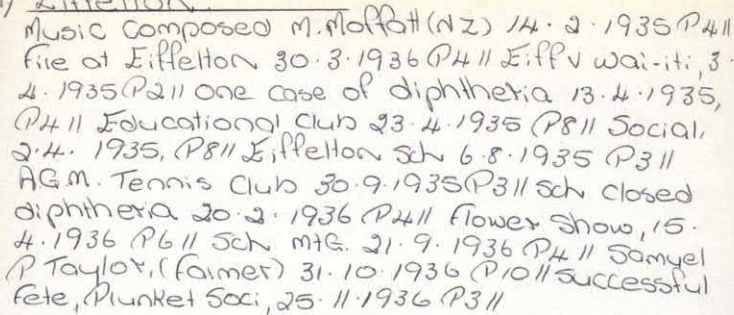 Eiffelton.
Music composed M. Moffatt (NZ) 14. 2. 1935 P4 ||
fire at Eiffelton 30. 3. 1936 P4 || Eiff v wai-iti, 3.
4. 1935 P2 || one case of diphtheria 13. 4. 1935,
P4 || Educational Club 23. 4. 1935 P8 || Social,
2. 4. 1935, P8 || Eiffelton Sch 6. 8. 1935 P3 ||
AGM. Tennis Club 30. 9. 1935 P3 || Sch closed
diphtheria 20. 2. 1936 P4 || flower Show, 15.
4. 1936 P6 || Sch mtG. 21. 9. 1936 P4 || Samuel
P Taylor, (farmer) 31. 10. 1936 P10 || successful
fete, Plunket Soci, 25. 11. 1936 P3 ||